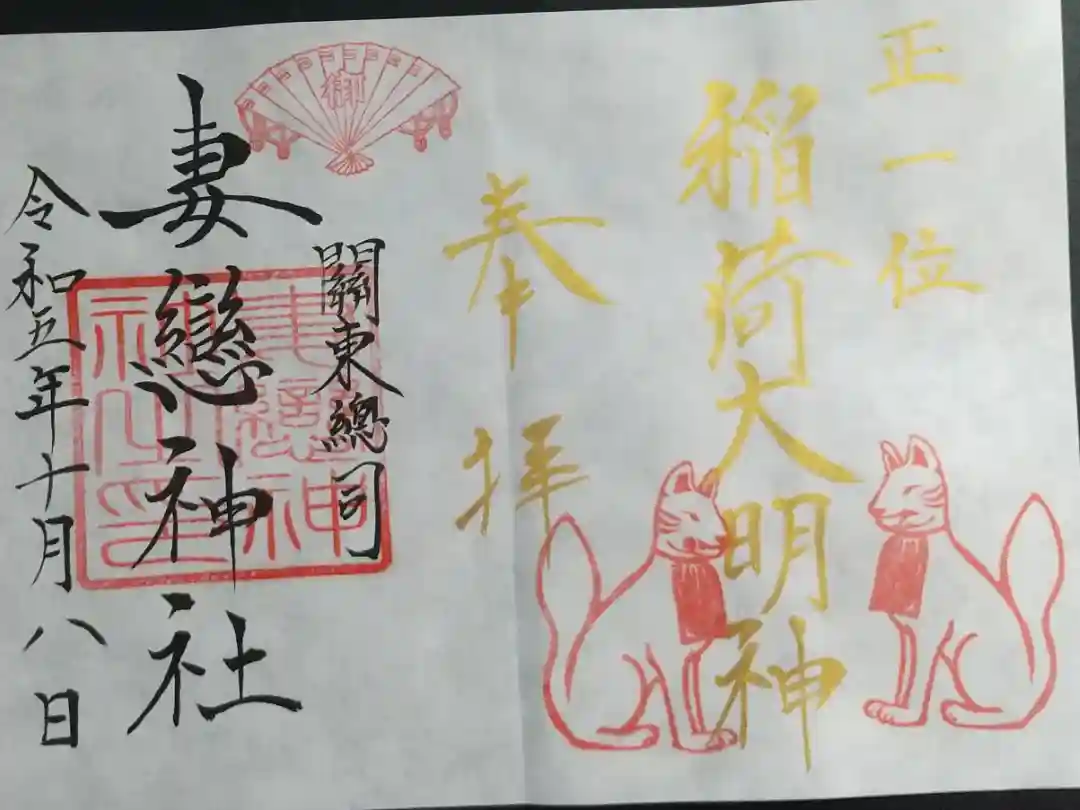 正一位
稲荷大明神
奉拝
御
關東總司
妻戀神社
令和五年十月八日